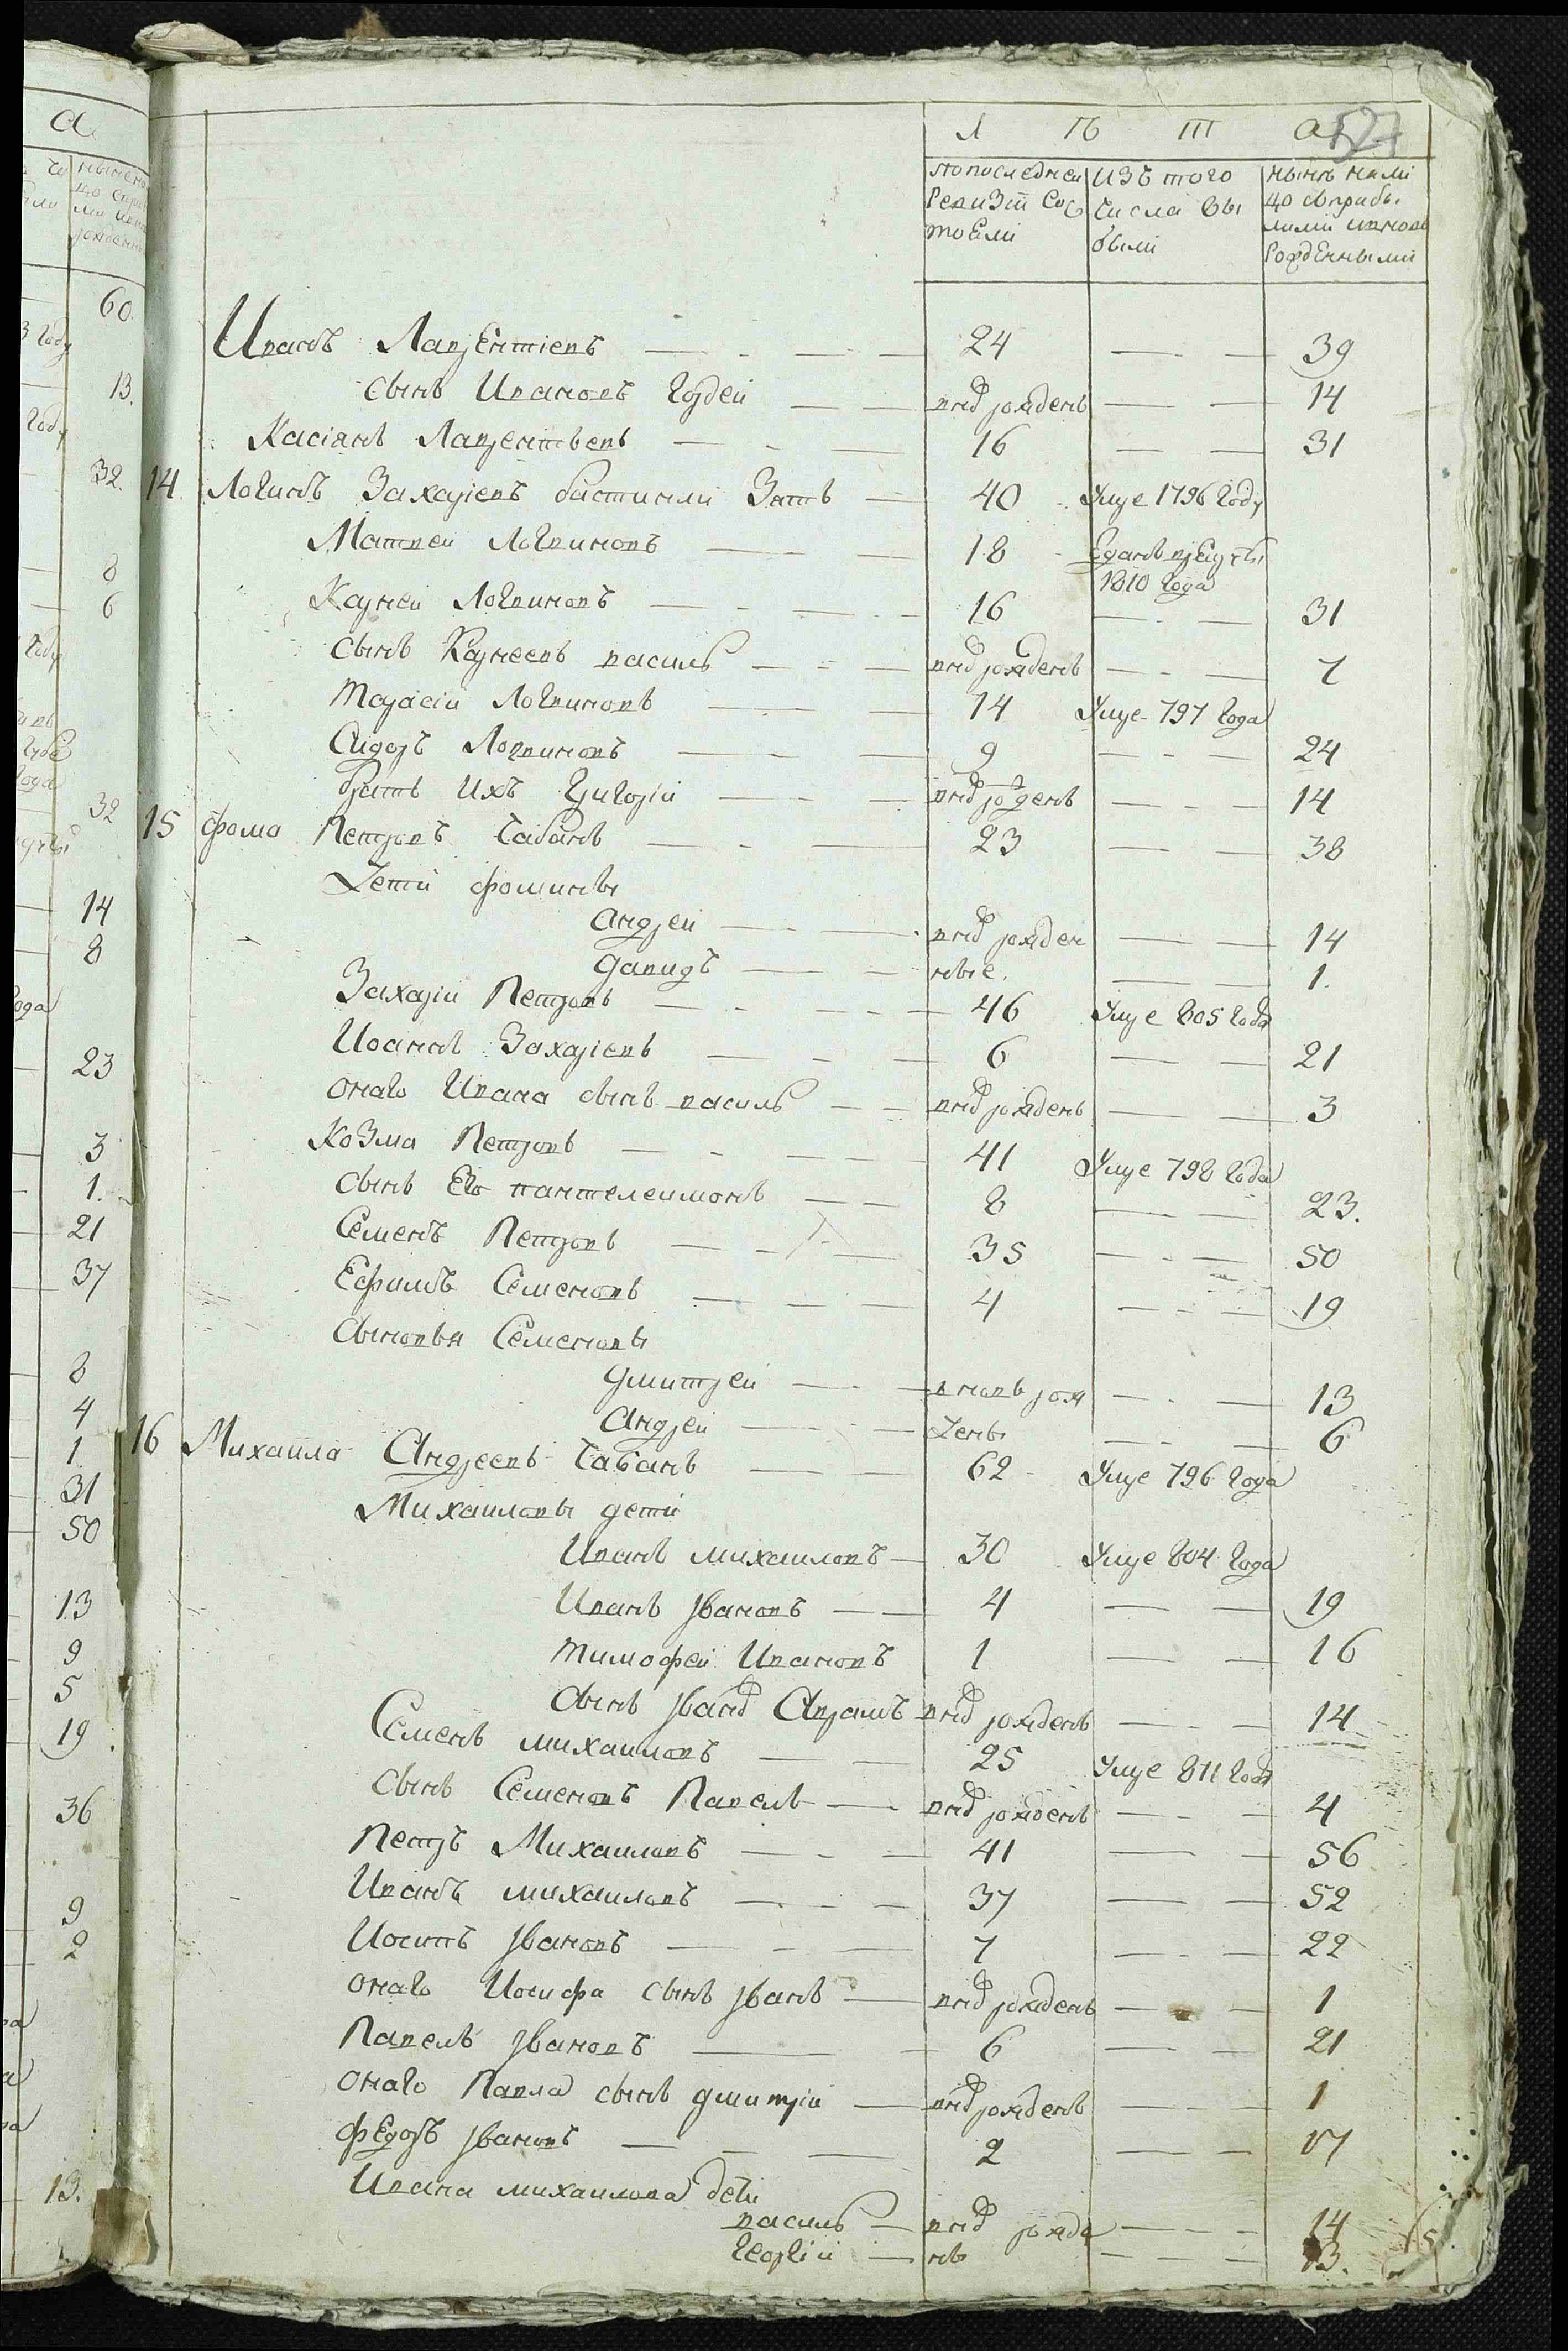 Л Ѣ Т А
527
по последней ревизіи состоели
изъ того числа выбыли
нынѣ нали цо съприбылими ивновь рожденными
Иванъ Лаврентіевъ — 24 — 39
сынъ Ивановъ Гордей — внов рожденъ — 14
Касіянъ Лаврентьевъ — 16 — 31
14 Логинъ Захаріевъ Зать — 40 Умре 1796 Году
Матвей Логвиновъ — 18 Зданъ врекруты 1810 Года
Карней Логвиновъ — 16 — 31
сынъ Карнеевъ василь — внов рожденъ — 7
Тарасій Логвиновъ — 14 Умре 797 Года
Сидоръ Логвиновъ — 9 — 24
братъ Ихъ Григорій — внов рожденъ — 14
15 Фома Петровъ Чабанъ — 23 — 38
Дети фомины
андрей — внов рожден — 14
давидъ — ные. — 1.
Захарій Петровъ — 46 Умре 805 Года
Иоаннъ Захаріевъ — 6 — 21
онаго Ивана сынъ василь — внов рожденъ — 3
Козма Петровъ — 41 Умре 798 Года
сынъ Его пантелеимонъ — 8 — 23.
Семенъ Петровъ — 35 — 50
Ефимъ Семеновъ — 4 — 19
сыновья Семеновы
дмитрей — вновь рож — 13
Андрей — дены — 6
16 Михаила Андреевъ Чабанъ — 62 Умре 796 Года
Михаиловы дети
Иванъ михаиловъ — 30 Умре 804 Года
Иванъ Ивановъ — 4 — 19
тимофей Ивановъ 1 — 16
сынъ Иванов Аврамъ внов рожденъ — 14
Семенъ михаиловъ — 25 Умре 811 Года
сынъ Семеновъ Павелъ — внов рожденъ — 4
Петръ Михаиловъ — 41 — 56
Иванъ михаиловъ — 37 — 52
Иосипъ Ивановъ — 7 — 22
онаго Иосифа сынъ Иванъ — внов рожденъ — 1
Павелъ Ивановъ — 6 — 21
онаго Павла сынъ дмитрій — внов рожденъ — 1
фЕдоръ Ивановъ — 2 — 17
Ивана михаилова дети
василь — внов рожде — 14
Георгій — нъ — 13.